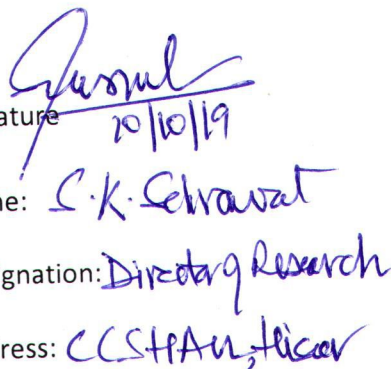 ature
20/10/19
ne: S.K. Sehrawat
gnation: Director of Research
ress: CCSHAU, Hisar